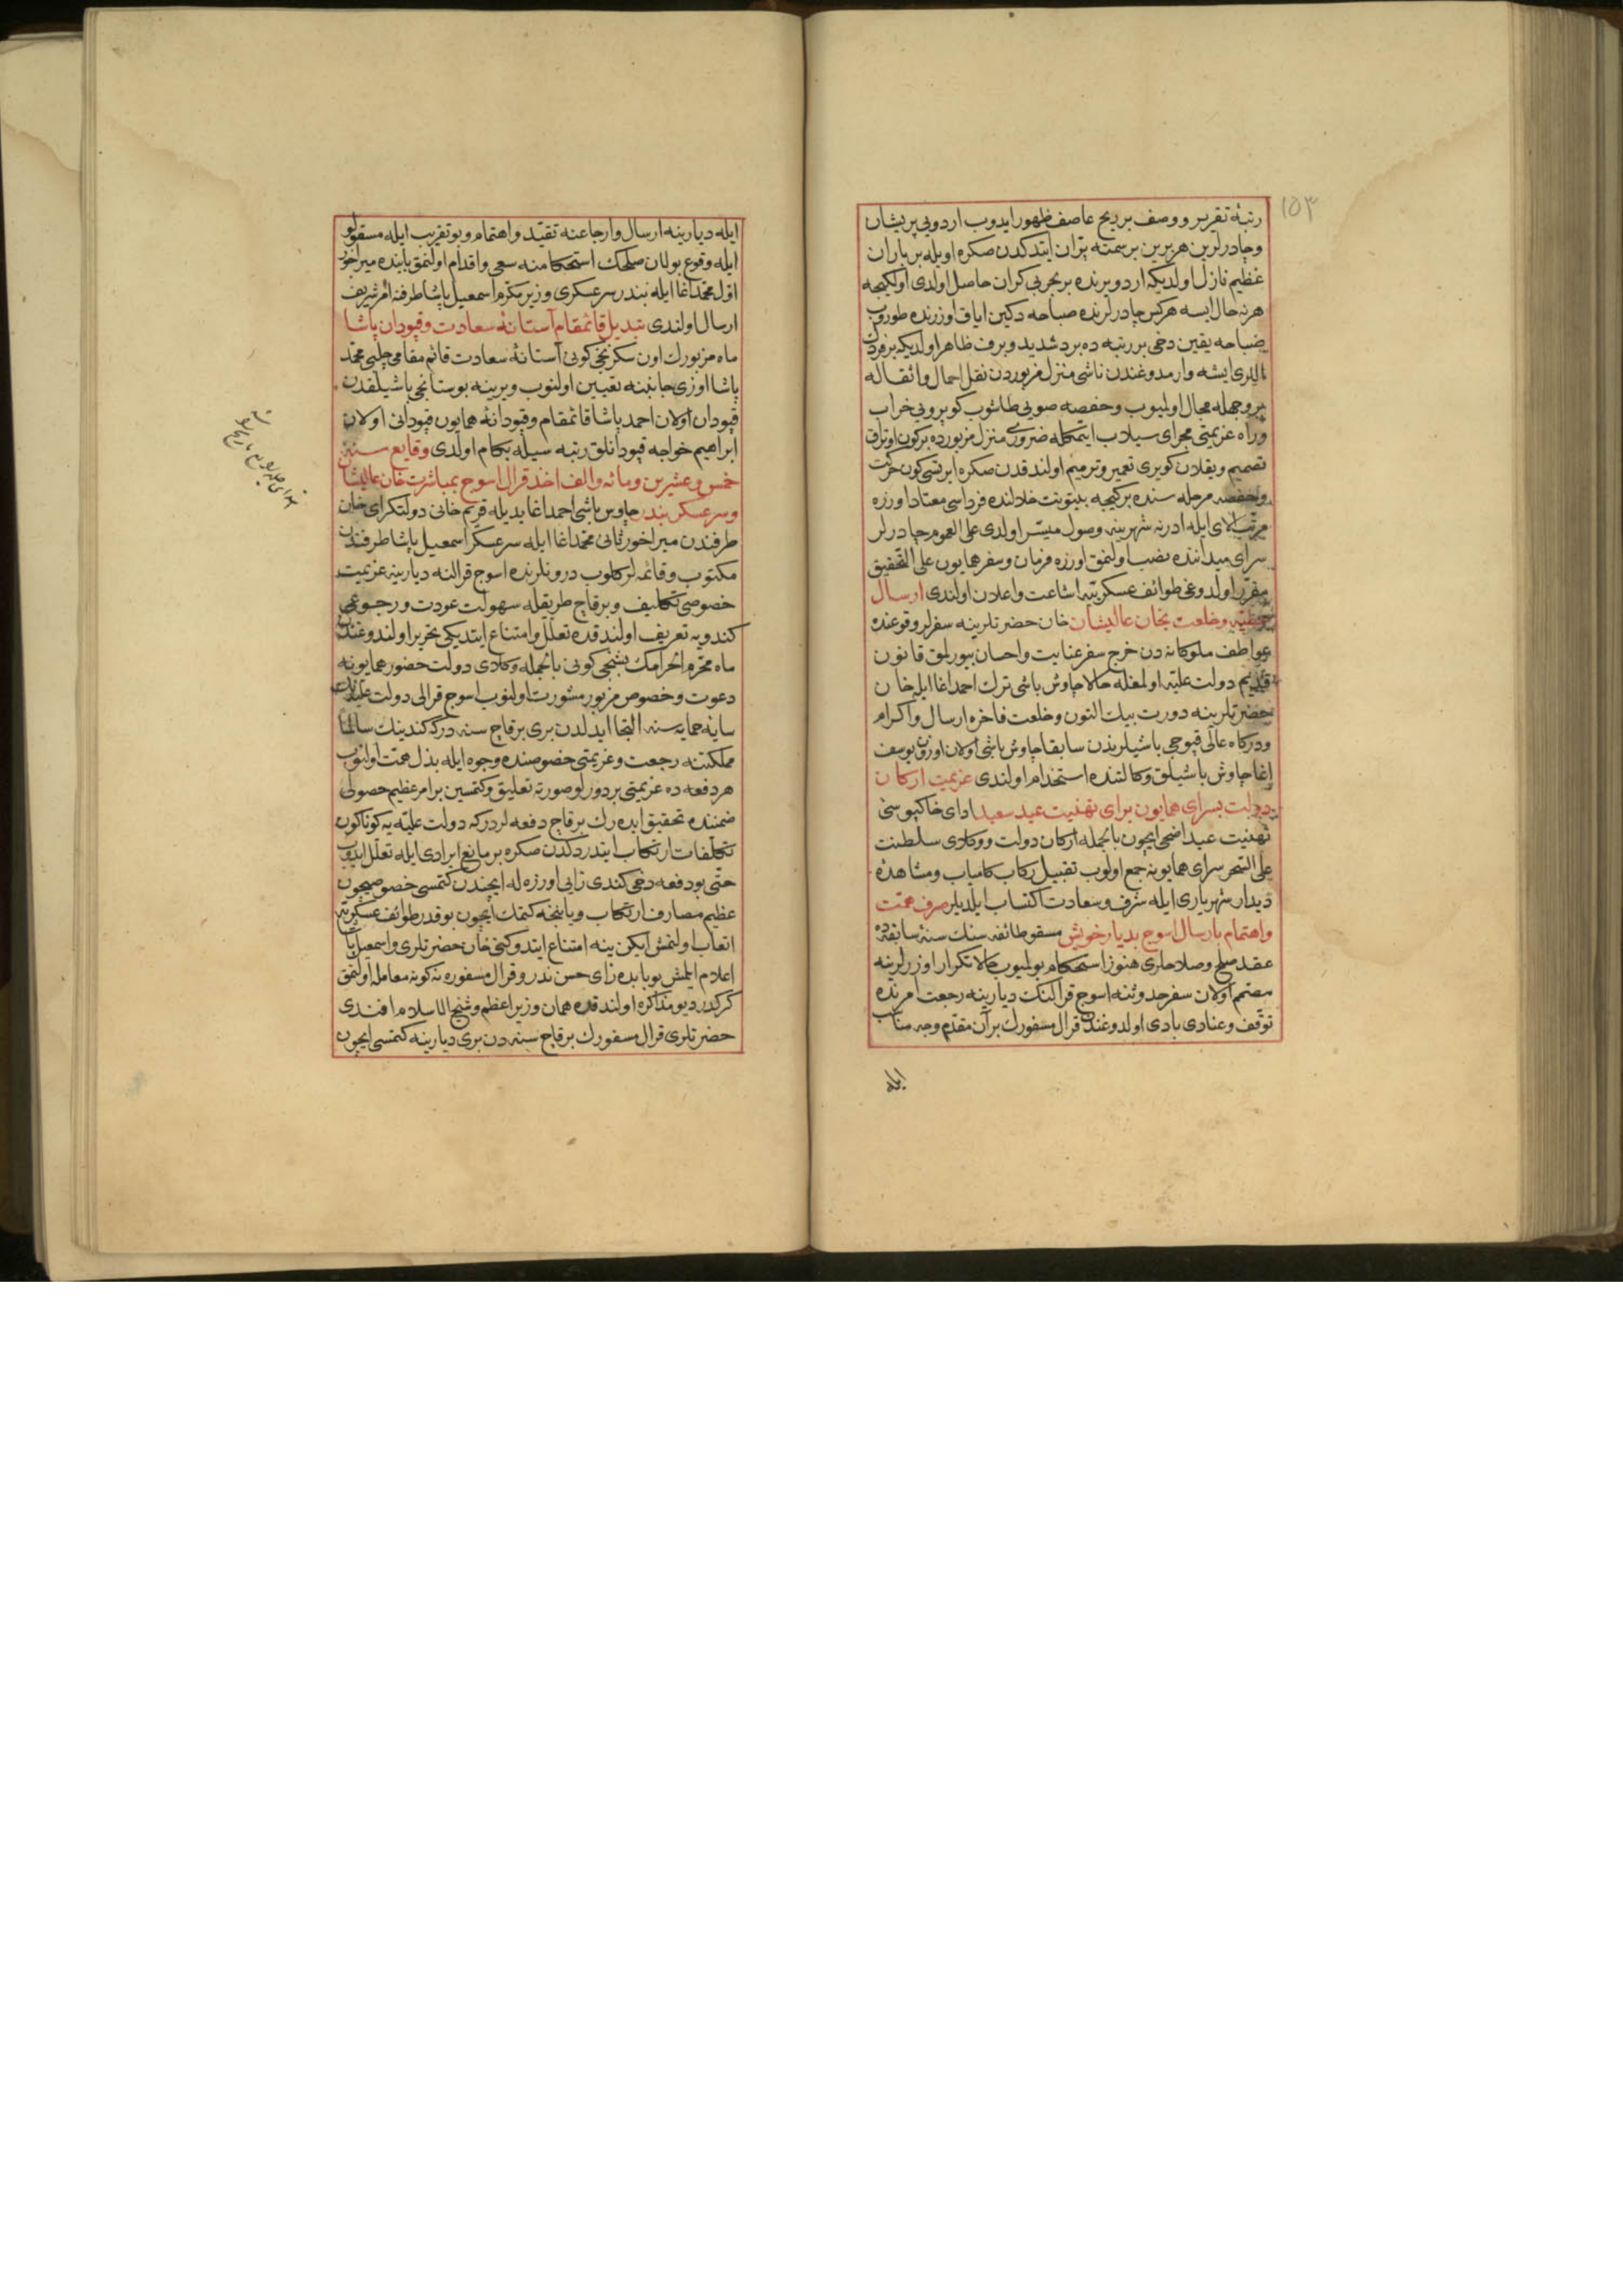 ١٥٣
رتبۀ تقریر و وصف بر ریح عاصف ظهور ایدوب اردویی پریشان
و چادرلرین هر برین بر سمته پرّان ایتدكدن صكره اویله بر باران
عظیم نازل اولدیكه اردو یرنده بر بحر بی كران حاصل اولدی اولكیجه
هر نه حال ایسه هركس چادرلرنده صباحه دكین ایاق اوزرنده طوروب
صباحه یقین دخی بر رتبه ده برد شدید و برف ظاهر اولدیكه بر فردك
اللری ایشه وارمدوغندن ناشی منزل مزبوردن نقل احمال و اثقاله
بر وجهله مجال اولمیوب و حفصه صویی طاشوب كوپرویی خراب
و راه عزیمتی مجرای سیلاب ایتمكله ضروری منزل مزبورده بر كون اوتراق
تصمیم و یقلان كوپری تعمیر و ترمیم اولندقدن صكره ایرتسی كون حركت
و حفصه مرحله سنده بر كیجه بیتوتت خلالنده فرداسی معتاد اوزره
مرتب الای ایله ادرنه شهرینه وصول میسّر اولدی علی العموم چادرلر
سرای میداننده نصب اولنمق اوزره فرمان و سفر همایون علی التحقیق
مقرّر اولدوغی طوائف عسكریّیه اشاعت و اعلان اولندی ارسال
عطیّه و خلعت بخان عالیشان خان حضرتلرینه سفرلر وقوعنده
عواطف ملوكانه دن خرج سفر عنایت و احسان بیورلمق قانون
قدیم دولت علیّه اولمغله حالا چاوش باشی ترك احمد اغا ایله خان
حضرتلرینه دورت بیك التون و خلعت فاخره ارسال و اكرام
و دركاه عالی قپوجی باشیلرندن سابقا چاوش باشی اولان اوزون یوسف
اغا چاوش باشیلق وكالتنده استخدام اولندی عزیمت اركان
دولت بسرای همایون برای تهنیت عید سعید ادای خاكپوسی
تهنیت عید اضحی ایچون بالجمله اركان دولت و وكلای سلطنت
علی السّحر سرای همایونه جمع اولوب تقبیل ركاب كامیاب و مشاهدۀ
دیدار شهریاری ایله شرف و سعادت اكتساب ایلدیلر صرف همّت
و اهتمام بارسال اسوج بدیار خویش مسقو طائفه سنك سنۀ سابقه ده
عقد صلح و صلاحلری هنوز استحكام بولمیوب حالا تكرار اوزرلرینه
مصمّم اولان سفر حدوثنه اسوج قرالنك دیارینه رجعت امرنده
توقّف و عنادی بادی اولدوغندن قرال مسفورك بر آن مقدّم وجه مناسب
ایله
ایله دیارینه ارسال و ارجاعنه تقیّد و اهتمام و بو تقریب ایله مسقولو
ایله وقوع بولان صلحك استحكامنه سعی و اقدام اولنمق بابنده میراخور
اوّل محمّد اغا ایله بندر سرعسكری وزیر مكرّم اسمعیل پاشا طرفنه امر شریف
ارسال اولندی تبدیل قائمقام آستانۀ سعادت و قپودان پاشا
ماه مزبورك اون سكزنجی كونی آستانۀ سعادت قائم مقامی چلبی محمّد
پاشا اوزی جانبنه تعیین اولنوب و یرینه بوستانجی باشیلقدن
قپودان اولان احمد پاشا قائمقام و قپودانۀ همایون قپودانی اولان
ابراهیم خواجه قپودانلق رتبه سیله بكام اولدی وقایع سنۀ
خمس و عشرین و مائه و الف اخذ قرال اسوج بمباشرت خان عالیشان
و سرعسكر بندر چاوش باشی احمد اغا یدیله قریم خانی دولتكرای خان
طرفندن میراخور ثانی محمّد اغا ایله سرعسكر اسمعیل پاشا طرفندن
مكتوب و قائمه لر كلوب درونلرنده اسوج قرالنه دیارینه عزیمت
خصوصی تكلیف و بر قاچ طریقله سهولت عودت و رجوعی
كندویه تعریف اولندقده تعلّل و امتناع ایتدیكی تحریر اولندوغندن
ماه محرّم الحرامك بشنجی كونی بالجمله وكلای دولت حضور همایونه
دعوت و خصوص مزبور مشورت اولنوب اسوج قرالی دولت علیّه نك
سایۀ حمایه سنه التجا ایدلدن بری بر قاچ سنه در كه كندینك سالما
مملكتنه رجعت و عزیمتی خصوصنده وجوه ایله بذل همّت اولنوب
هر دفعه ده عزیمتی بر دورلو صورته تعلیق و كتمسین بر امر عظیم حصولی
ضمننده تحقیق ایده رك بر قاچ دفعه لردر كه دولت علیّه یه كوناكون
تكلّفات ارتكاب ایتدردكدن صكره بر مانع ایرادی ایله تعلّل ایدوب
حتّی بو دفعه دخی كندی رایی اوزره له ایچندن كتمسی خصوصیچون
عظیم مصارف ارتكاب و یاننجه كتمك ایچون بو قدر طوائف عسكریّه
اتعاب اولنمش ایكن ینه امتناع ایتدوكنی خان حضرتلری و اسمعیل پاشا
اعلام ایلمش بو بابده رای حسن ندر و قرال مسفوره نه كونه معامله اولنمق
كركدر دیو مذاكره اولندقده همان وزیر اعظم و شیخ الاسلام افندی
حضرتلری قرال مسفورك بر قاچ سنه دن بری دیارینه كتمسی ایچون